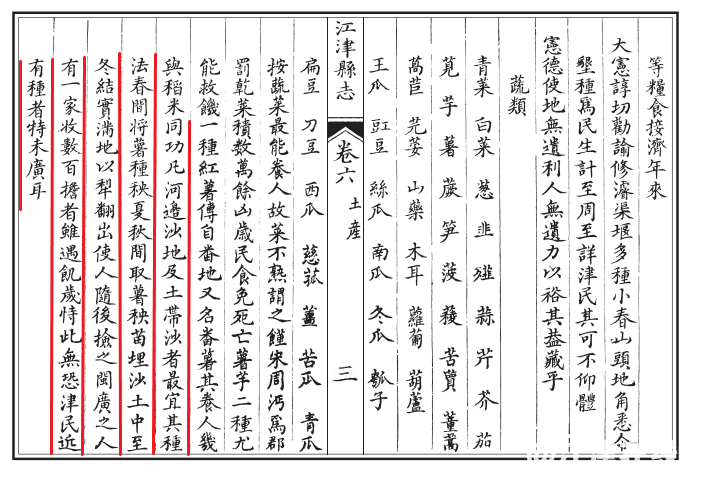 等糧食接濟年來
大憲諄切勸諭修濬渠堰多種小春山頭地角悉令
墾種爲民生計至周至詳津民其可不仰體
憲德使地無遺利人無遺力以裕其葢藏乎
蔬類
青菜 白菜 葱 韭 薤 蒜 芹 芥 茄
莧 芋 薯 蕨 笋 菠 蕿 苦蕒 董蒿
萵苣 芫荽 山藥 木耳 蘿蔔 葫蘆
王瓜 豇豆 絲瓜 南瓜 冬瓜 瓠子
江津縣志 卷六 土産 三
扁豆 刀豆 西瓜 慈菰 薑 苦瓜 青瓜
按蔬菜最能養人故菜不熟謂之饉宋周沔爲郡
罰乾菜積數萬餘凶歲民食免死亡薯芋二種尤
能救饑一種紅薯傳自番地又名番薯其養人幾
與稻米同功凡河邉沙地及土帶沙者最宜其種
法春間將薯種秧夏秋間取薯秧苗埋沙土中至
冬結實滿地以犁翻出使人隨後撿之閩廣之人
有一家收數百擔者雖遇飢歲恃此無恐津民近
有種者特未廣耳